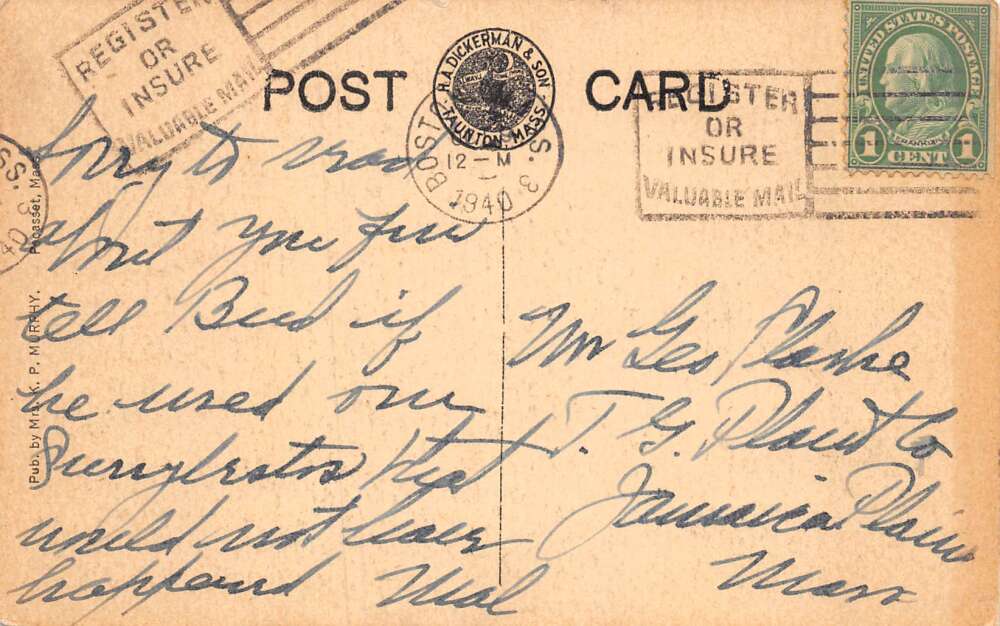 REGISTER
OR
INSURE
VALUABLE MAIL
POST CARD
H.A. DICKERMAN & SON
TAUNTON, MASS.
BOSTO
S. 3
12-M
1940
REGISTER
OR
INSURE
VALUABLE MAIL
UNITED STATES POSTAGE
FRANKLIN
1 CENT 1
SS. 3
40
Pub. by Mrs. K. P. MURPHY. Pocasset, Mass.
Sorry to read
about you
tell Bud if
he used our
that
would not have
happened Mal
Mr Geo Clarke
T. G. Plant Co
Jamaica Plain
Mass